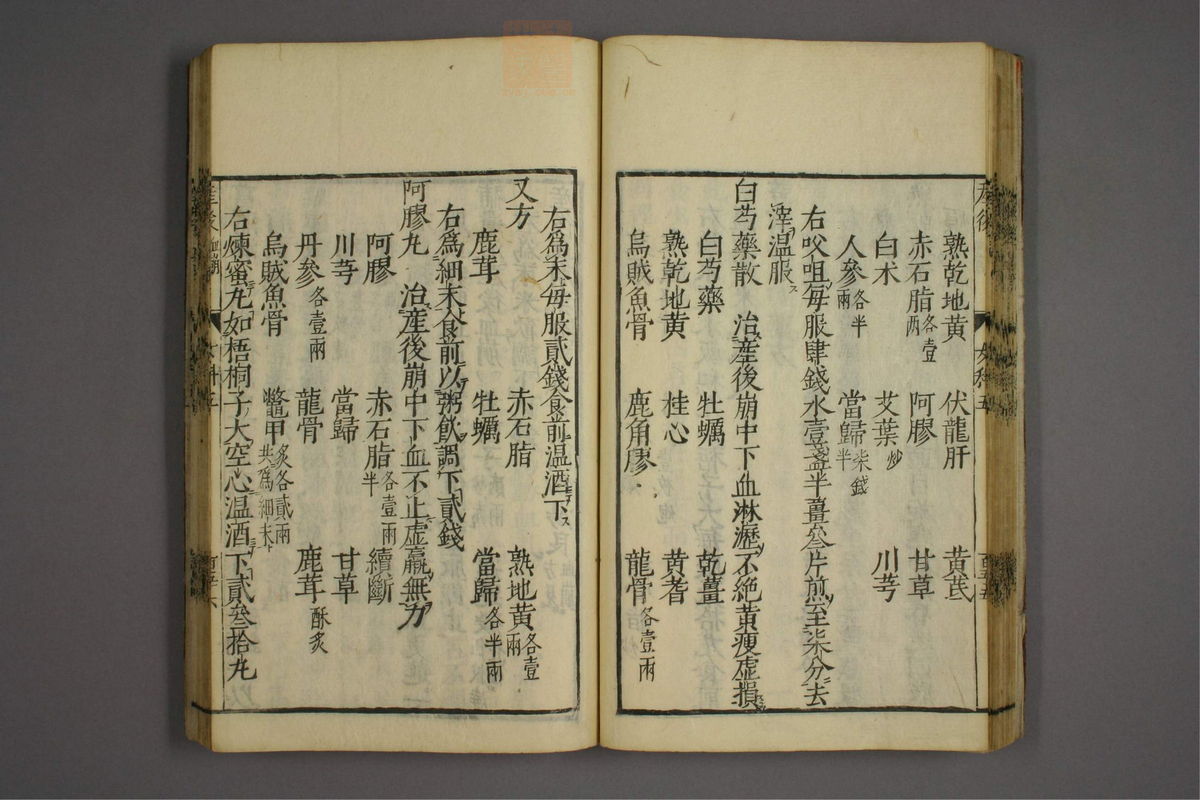 産後
女科五
熟乾地黄 伏龍肝 黄芪
赤石脂各壹兩 阿膠 甘草
白术 艾葉炒 川芎
人參各半兩 當歸柒錢半
右㕮咀每服肆錢水壹盞半薑叄片煎至柒分去
滓温服ス
白芍藥散 治産後崩中下血淋瀝不絶黄瘦虚損
白芍藥 牡蠣 乾薑
熟乾地黄 桂心 黄耆
烏賊魚骨 鹿角膠 龍骨各壹兩
右爲末毎服貳錢食前温酒下ス
又方 赤石脂 熟地黄各壹兩
鹿茸 牡蠣 當歸各半兩
右爲細末食前以粥飲調下貳錢
阿膠丸 治産後崩中下血不止虚羸無力
阿膠 赤石脂各壹兩半 續斷
川芎 當歸 甘草
丹參各壹兩 龍骨 鹿茸酥炙
烏賊魚骨 鱉甲炙各貳兩共爲細末
右煉蜜丸如梧桐子大空心温酒下貳叄拾丸
産後血崩
女科五